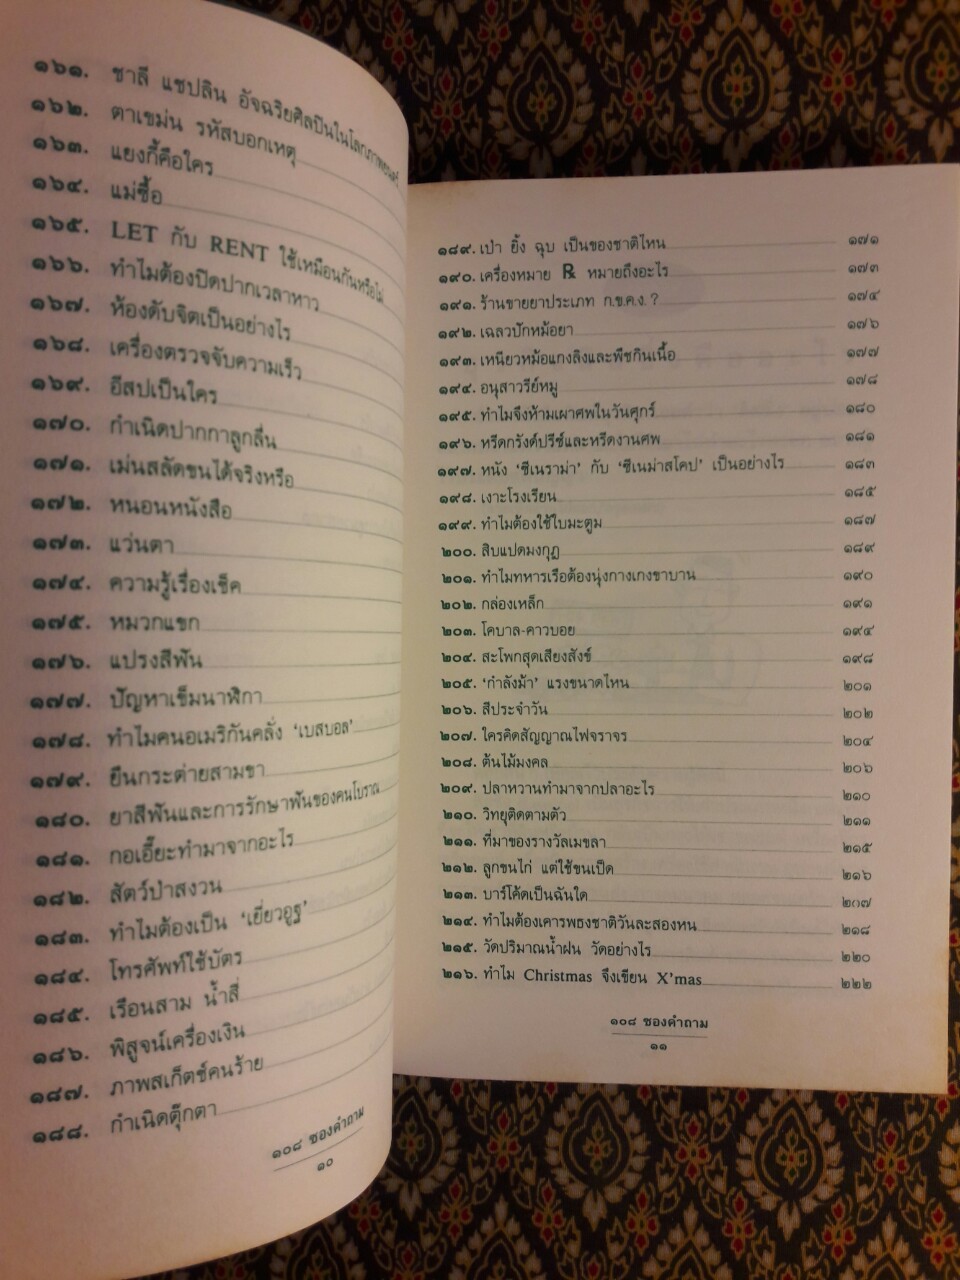 ๑๖๑. ชาลี แชปลิน อัจฉริยศิลปินในโลกภาพยนตร์
๑๖๒. ตาเขม่น รหัสบอกเหตุ
๑๖๓. แยงกี้คือใคร
๑๖๔. แม่ซื้อ
๑๖๕. LET กับ RENT ใช้เหมือนกันหรือไม่
๑๖๖. ทำไมต้องปิดปากเวลาหาว
๑๖๗. ห้องดับจิตเป็นอย่างไร
๑๖๘. เครื่องตรวจจับความเร็ว
๑๖๙. อีสปเป็นใคร
๑๗๐. กำเนิดปากกาลูกลื่น
๑๗๑. เม่นสลัดขนได้จริงหรือ
๑๗๒. หนอนหนังสือ
๑๗๓. แว่นตา
๑๗๔. ความรู้เรื่องเช็ค
๑๗๕. หมวกแขก
๑๗๖. แปรงสีฟัน
๑๗๗. ปัญหาเข็มนาฬิกา
๑๗๘. ทำไมคนอเมริกันคลั่ง 'เบสบอล'
๑๗๙. ยืนกระต่ายสามขา
๑๘๐. ยาสีฟันและการรักษาฟันของคนโบราณ
๑๘๑. กอเอี๊ยะทำมาจากอะไร
๑๘๒. สัตว์ป่าสงวน
๑๘๓. ทำไมต้องเป็น 'เยี่ยวอูฐ'
๑๘๔. โทรศัพท์ใช้บัตร
๑๘๕. เรือนสาม น้ำสี่
๑๘๖. พิสูจน์เครื่องเงิน
๑๘๗. ภาพสเก็ตช์คนร้าย
๑๘๘. กำเนิดตุ๊กตา
๑๐๘ ซองคำถาม
๑๐
๑๘๙. เป่า ยิ้ง ฉุบ เป็นของชาติไหน ๑๗๑
๑๙๐. เครื่องหมาย ℞ หมายถึงอะไร ๑๗๓
๑๙๑. ร้านขายยาประเภท ก.ข.ค.ง. ? ๑๗๔
๑๙๒. เฉลวปักหม้อยา ๑๗๖
๑๙๓. เหนียวหม้อแกงลิงและพืชกินเนื้อ ๑๗๗
๑๙๔. อนุสาวรีย์หมู ๑๗๘
๑๙๕. ทำไมจึงห้ามเผาศพในวันศุกร์ ๑๘๐
๑๙๖. หรีดกรังด์ปรีซ์และหรีดงานศพ ๑๘๑
๑๙๗. หนัง 'ซีเนราม่า' กับ 'ซีเนม่าสโคป' เป็นอย่างไร ๑๘๓
๑๙๘. เงาะโรงเรียน ๑๘๕
๑๙๙. ทำไมต้องใช้ใบมะตูม ๑๘๗
๒๐๐. สิบแปดมงกุฎ ๑๘๙
๒๐๑. ทำไมทหารเรือต้องนุ่งกางเกงขาบาน ๑๙๐
๒๐๒. กล่องเหล็ก ๑๙๑
๒๐๓. โคบาล-คาวบอย ๑๙๔
๒๐๔. สะโพกสุดเสียงสังข์ ๑๙๘
๒๐๕. 'กำลังม้า' แรงขนาดไหน ๒๐๑
๒๐๖. สีประจำวัน ๒๐๒
๒๐๗. ใครคิดสัญญาณไฟจราจร ๒๐๔
๒๐๘. ต้นไม้มงคล ๒๐๖
๒๐๙. ปลาหวานทำมาจากปลาอะไร ๒๑๐
๒๑๐. วิทยุติดตามตัว ๒๑๑
๒๑๑. ที่มาของรางวัลเมขลา ๒๑๕
๒๑๒. ลูกขนไก่ แต่ใช้ขนเป็ด ๒๑๖
๒๑๓. บาร์โค้ดเป็นฉันใด ๒๑๗
๒๑๔. ทำไมต้องเคารพธงชาติวันละสองหน ๒๑๘
๒๑๕. วัดปริมาณน้ำฝน วัดอย่างไร ๒๒๐
๒๑๖. ทำไม Christmas จึงเขียน X'mas ๒๒๒
๑๐๘ ซองคำถาม
๑๑